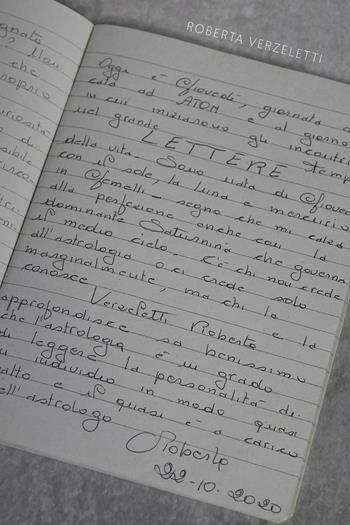 ROBERTA VERZELETTI
gnata
? Mau
che
sopris
uriosità
di
sibile
Oggi è Giovedì, giornata
cata ad ATON e al giorno
in cui iniziarono gli incontri
nel grande
LETTERE
della vita. Sono nata di Giove
con il sole, la luna e mercurio
in Gemelli - segno che mi calza
alla perfezione anche con la
dominante Saturnina che governa
il medio cielo. C'è chi non crede
all'astrologia o ci crede solo
marginalmente, ma chi la
conosce e la
Verzeletti Roberta
approfondisce sa benissimo
che l'astrologia è in grado
di leggere la personalità di
individuo in modo quasi
alto e il quasi è a carico
ell'astrologo
Roberta
22-10. 2020